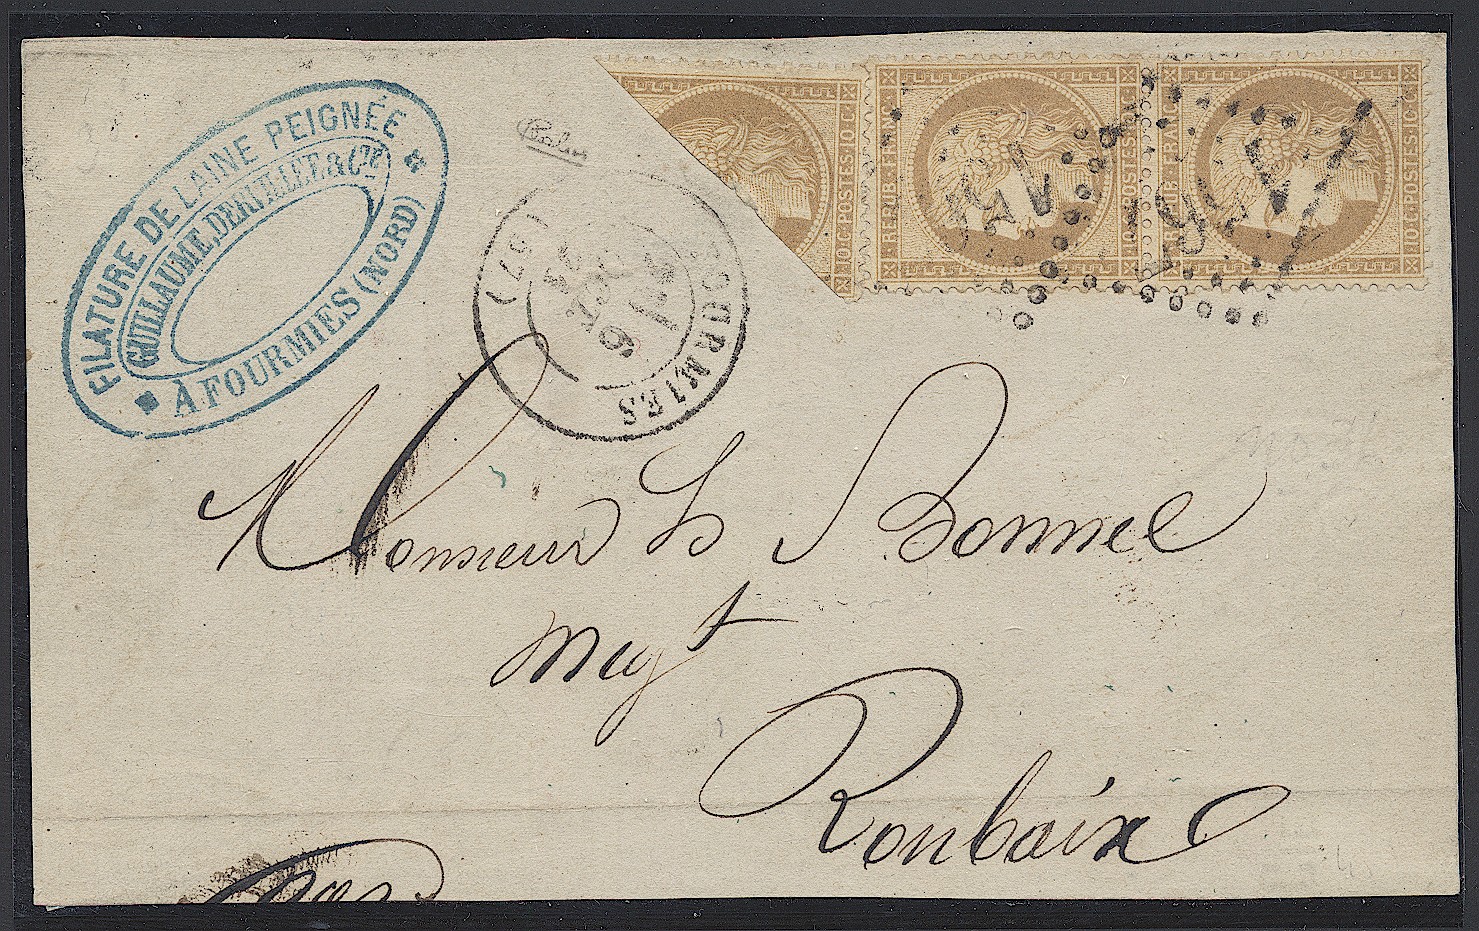 FILATURE DE LAINE PEIGNÉE
GUILLAUME, DERVILLÉE & Cie
À FOURMIES (NORD)
10 C. POSTES 10 C.
REPUB · FRANC ·
10 C. POSTES 10 C.
REPUB · FRANC ·
10 C. POSTES 10 C.
FOURMIES
(57)
OCT.
Monsieur H Bonnel
Negt
Roubaix